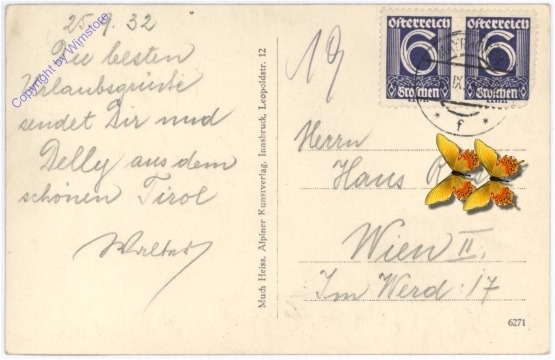 25.9.32
Die besten
Urlaubsgrüße
sendet Dir und
Delly aus dem
schönen Tirol
Walter
Copyright by Wimstore
Much Heiss, Alpiner Kunstverlag, Innsbruck, Leopoldstr. 12
Österreich
6
Groschen
Österreich
6
Groschen
* f *
Herrn
Hans
Wien II.
Im Werd: 17
6271